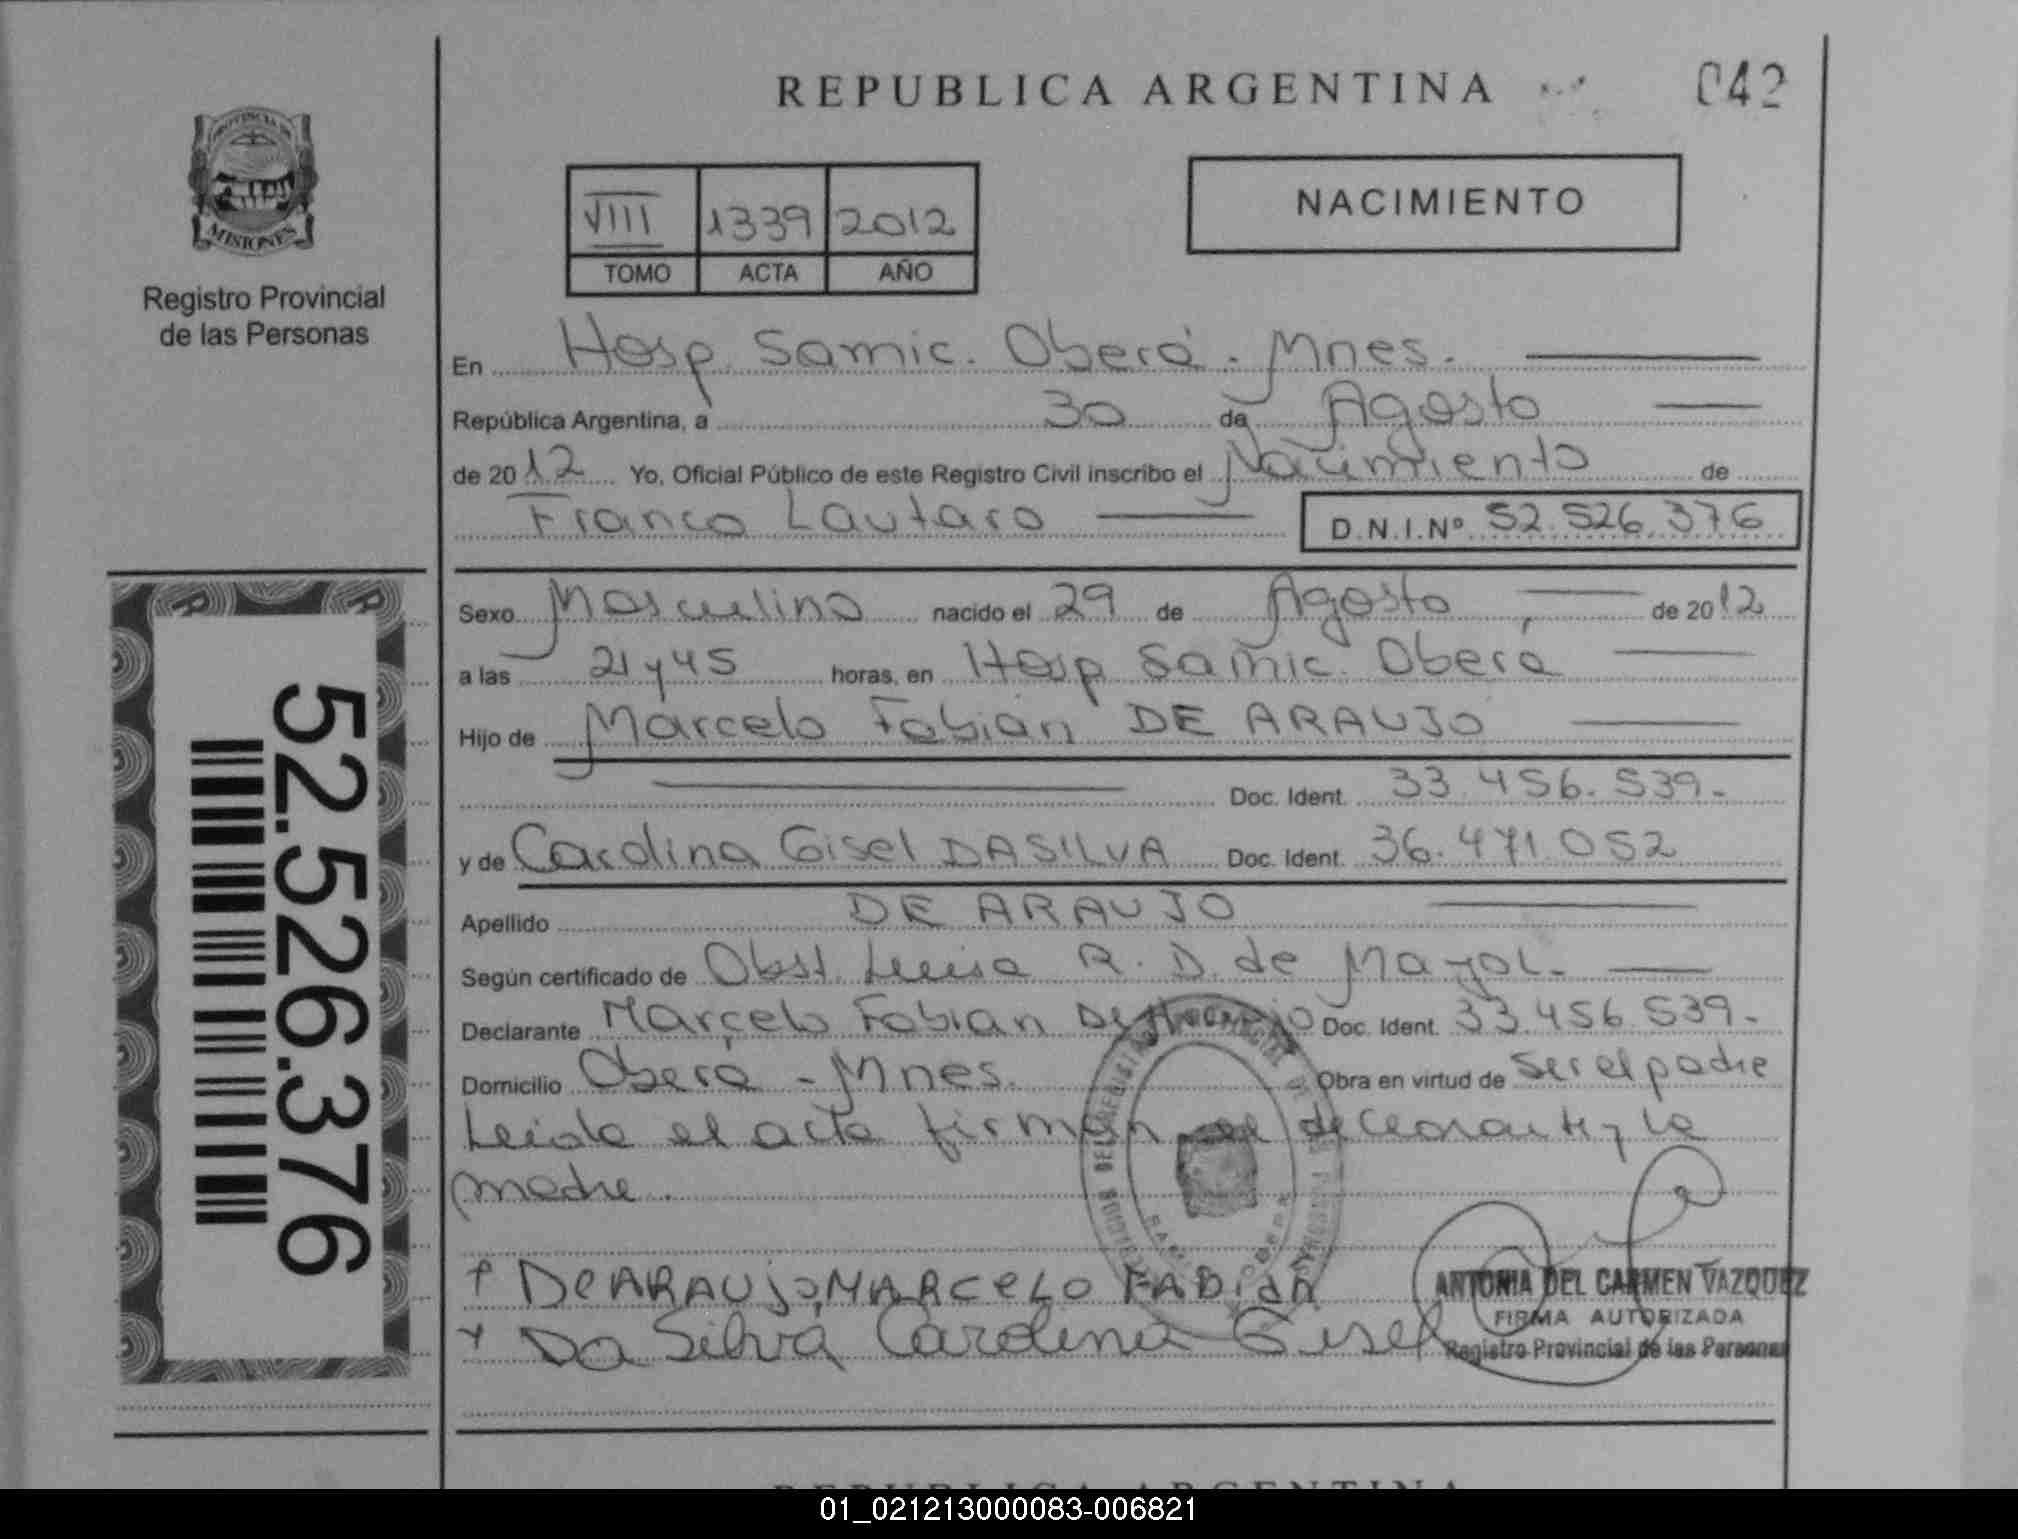 REPUBLICA ARGENTINA
042
PROVINCIA DE
MISIONES
Registro Provincial
de las Personas
VIII 1339 2012
TOMO ACTA AÑO
NACIMIENTO
En Hosp. Samic. Oberá - Mnes.
República Argentina, a 30 de Agosto
de 2012 Yo, Oficial Público de este Registro Civil inscribo el Nacimiento de
Franco Lautaro D.N.I.Nº 52.526.376
Sexo Masculino nacido el 29 de Agosto de 2012
a las 21 y 45 horas, en Hosp Samic. Oberá
Hijo de Marcelo Fabian DE ARAUJO
Doc. Ident. 33.456.539.-
y de Carolina Gisel DA SILVA Doc. Ident. 36.471.052
Apellido DE ARAUJO
Según certificado de Obst. Luisa R. D. de Mayol.
Declarante Marcelo Fabian De Araujo Doc. Ident. 33.456.539.-
Domicilio Oberá - Mnes. Obra en virtud de ser el padre
Leida el acta firman el declarante y la
madre.
De ARAUJO, MARCELO FABIAN
Da Silva Carolina Gisel
ANTONIA DEL CARMEN VAZQUEZ
FIRMA AUTORIZADA
Registro Provincial de las Personas
52.526.376
REPUBLICA ARGENTINA
01_021213000083-006821